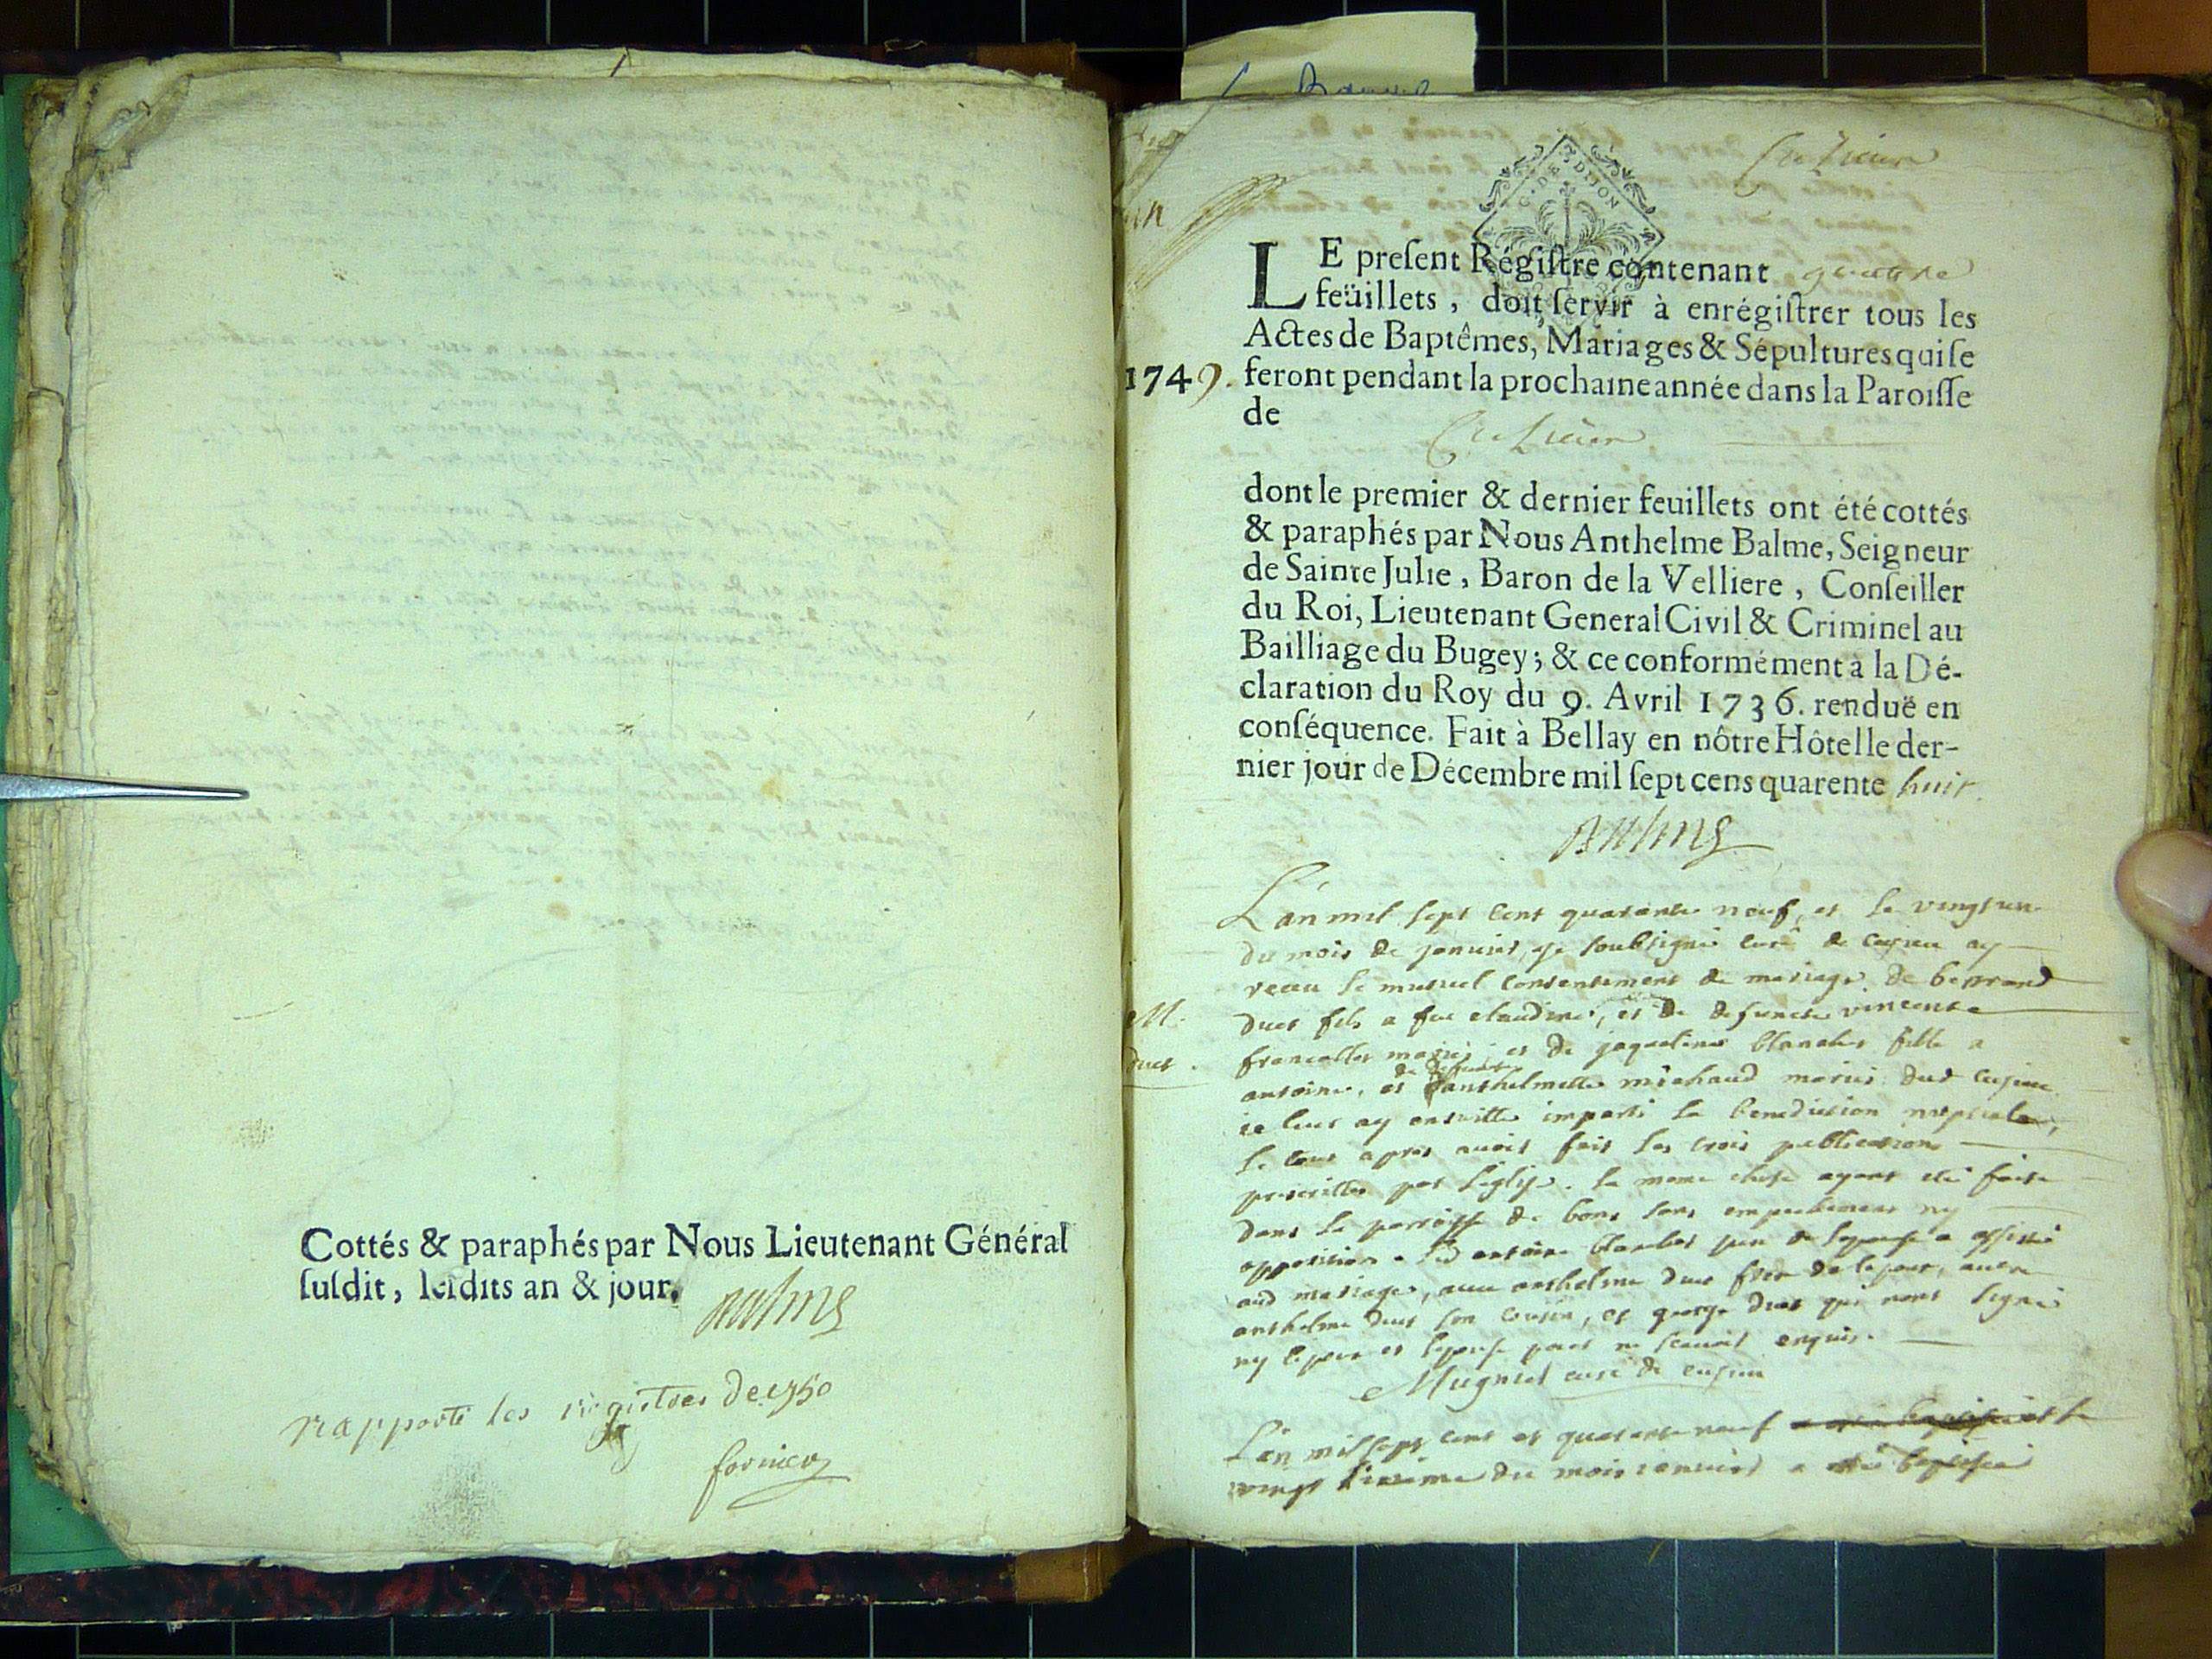 Cottés & paraphés par Nous Lieutenant Général
susdit, lesdits an & jour.
Balme
rapporté les registres de 1750
fornier
G. DE DIJON
LE present Régistre contenant quatre
feüillets, doit servir à enrégistrer tous les
Actes de Baptêmes, Mariages & Sépultures qui se
1749. feront pendant la prochaine année dans la Paroisse
de
dont le premier & dernier feuillets ont été cottés
& paraphés par Nous Anthelme Balme, Seigneur
de Sainte Julie, Baron de la Velliere, Conseiller
du Roi, Lieutenant General Civil & Criminel au
Bailliage du Bugey; & ce conformément à la Dé-
claration du Roy du 9. Avril 1736. renduë en
conséquence. Fait à Bellay en nôtre Hôtel le der-
nier jour de Décembre mil sept cens quarente huit.
Balme
L'an mil sept cent quarante neuf, et le vingt un
du mois de janvier, je soubsigné curé de cusieu ay
receu le mutuel consentement de mariage de bertrand
M. duet fils a feu claudine, et de defuncte vincente
duet. francallet mariés; et de jaqueline blanchet fille a
antoine, et de defuncte anthelmette michaud mariés dud cusieu
je leur ay ensuitte imparti la benediction nuptiale,
le tout apres avoir fait les trois publications
prescrittes par l'église. la meme chose ayant été faite
dans la parroisse de bons sans empechement ny
opposition. led antoine blanchet pere de l'epouse a assisté
aud mariage, avec anthelme duet frere de l'epoux, autre
anthelme duet son cousin, et george duet qui n'ont signé
ny l'epoux et l'epouse pour ne scavoir enquis.
Mugniet curé de cusieu
L'an mil sept cent et quarante neuf et le
vingt sixieme du mois janvier a été baptisée